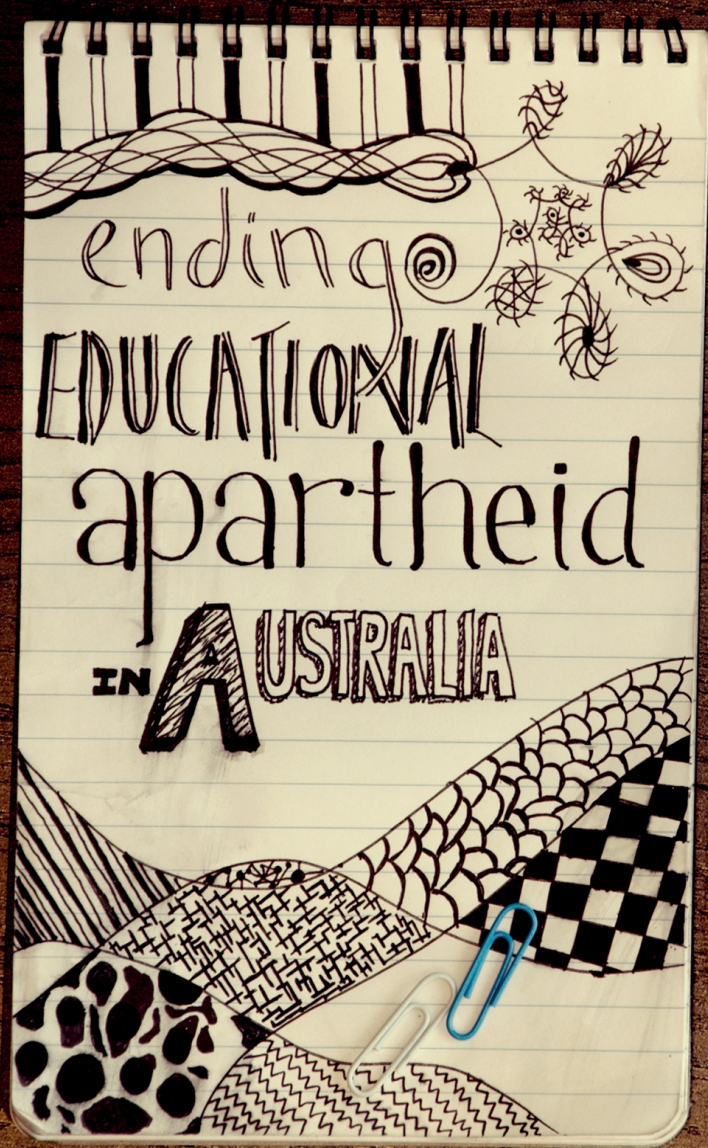 ending
EDUCATIONAL
apartheid
IN AUSTRALIA